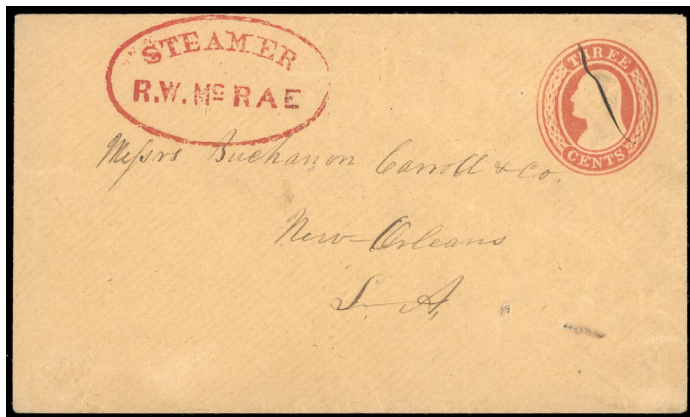 STEAMER
R.W. Mc RAE
THREE
CENTS
Messrs Buchanon Carroll & Co.
New Orleans
L. A,